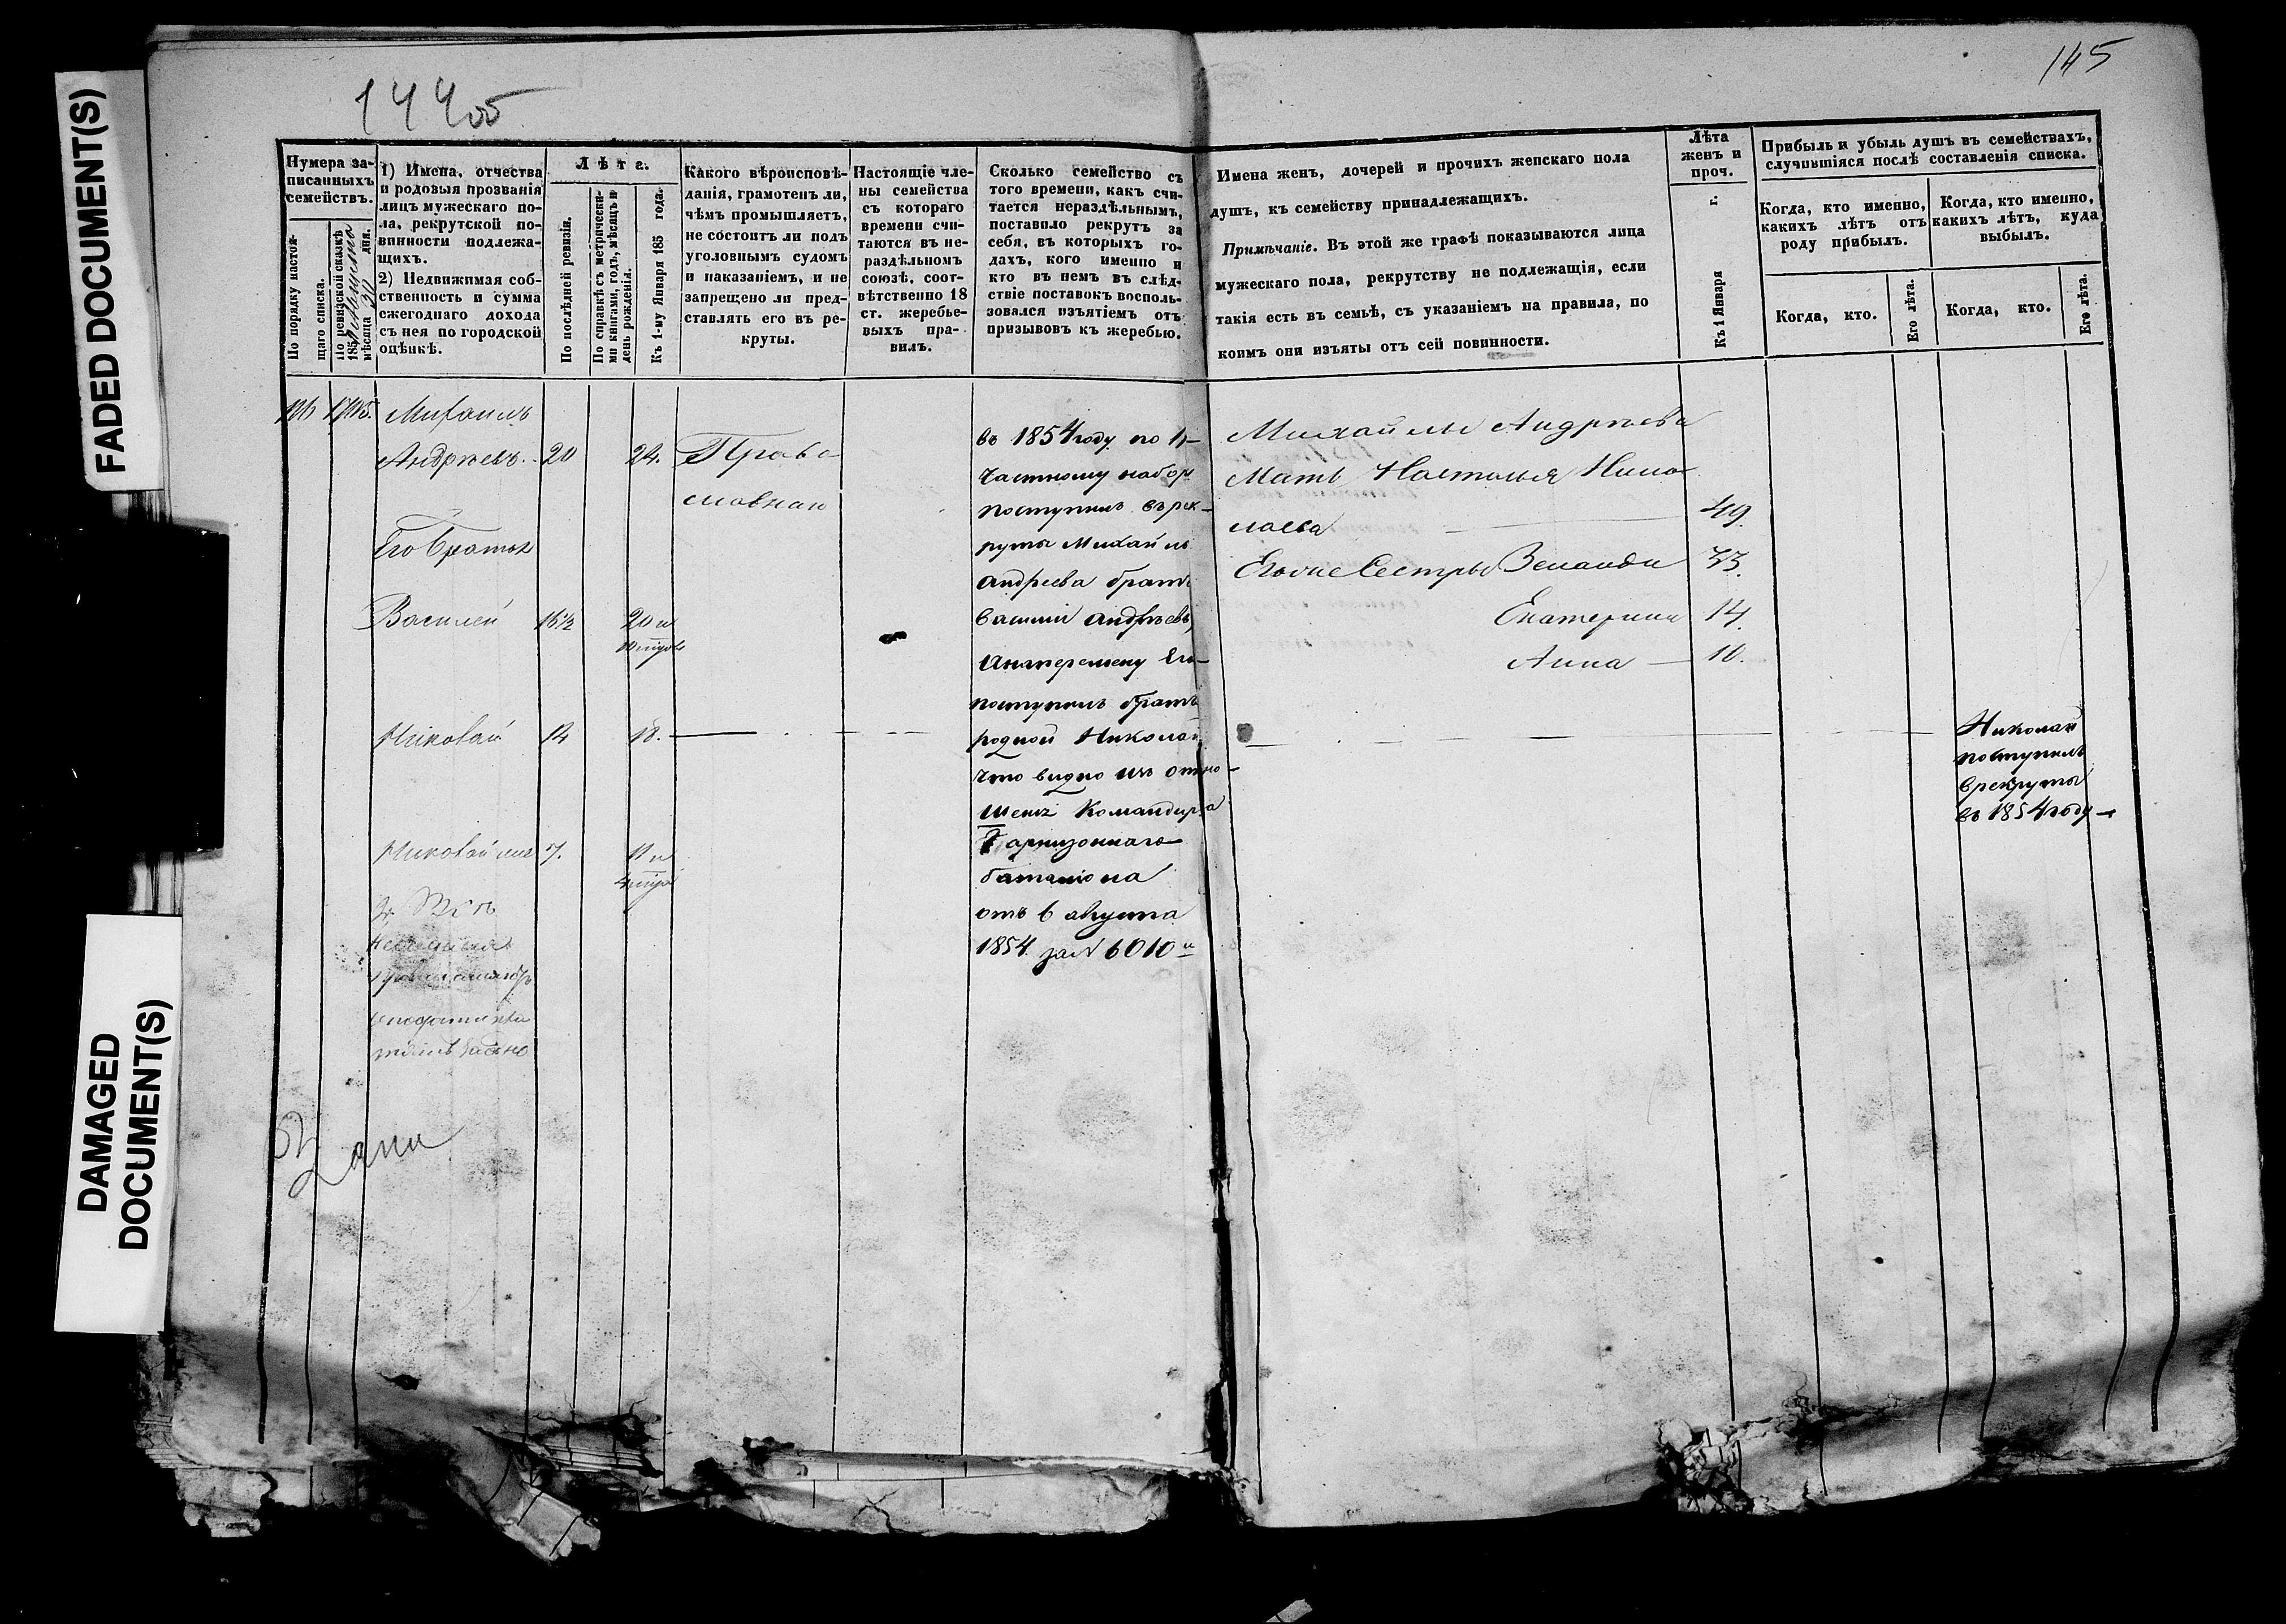 FADED DOCUMENT(S)
DAMAGED
DOCUMENT(S)
144об
145
Нумера за-
писанныхъ
семействъ.
По порядку настоя-
щаго списка.
По ревизской сказкѣ
185 мѣсяца 30 дня.
1) Имена, отчества
и родовыя прозванія
лицъ мужескаго по-
ла, рекрутской по-
винности подлежа-
щихъ.
2) Недвижимая соб-
ственность и сумма
ежегоднаго дохода
съ нея по городской
оцѣнкѣ.
Лѣта.
По послѣдней ревизіи.
По справкѣ съ метрически-
ми книгами, годъ, мѣсяцъ и
день рожденія.
Къ 1-му Января 185 года.
Какого вѣроисповѣ-
данія, грамотенъ ли,
чѣмъ промышляетъ,
не состоитъ ли подъ
уголовнымъ судомъ
и наказаніемъ, и не
запрещено ли пред-
ставлять его въ ре-
круты.
Настоящіе чле-
ны семейства
съ котораго
времени счи-
таются въ не-
раздѣльномъ
союзѣ, соот-
вѣтственно 18
ст. жеребье-
выхъ пра-
вилъ.
Сколько семейство съ
того времени, какъ счи-
тается нераздѣльнымъ,
поставило рекрутъ за
себя, въ которыхъ го-
дахъ, кого именно и
кто въ немъ въ слѣд-
ствіе поставокъ восполь-
зовался изъятіемъ отъ
призывовъ къ жеребью.
Имена женъ, дочерей и прочихъ женскаго пола
душъ, къ семейству принадлежащихъ.
Примѣчаніе. Въ этой же графѣ показываются лица
мужескаго пола, рекрутству не подлежащія, если
такія есть въ семьѣ, съ указаніемъ на правила, по
коимъ они изъяты отъ сей повинности.
Лѣта
женъ и
проч.
Къ 1 Января г.
Прибыль и убыль душъ въ семействахъ,
случившіяся послѣ составленія списка.
Когда, кто именно,
какихъ лѣтъ отъ
роду прибылъ.
Когда, кто именно,
какихъ лѣтъ, куда
выбылъ.
Когда, кто.
Его лѣта.
Когда, кто.
Его лѣта.
Михаилъ
Андреевъ. 20 24. Право
славнаго
Его братья
Василей 16½ 20 и
Николай 14 18.
Николай 7. 11 и
въ 1854 году по 11
частному набору
поступилъ въ рек-
руты Михайлы
Андреева братъ
Василій Андреевъ,
поступилъ братъ
родной Николай
что видно изъ отно-
шенi Командира
Гарнизоннаго
баталіона
отъ 6 августа
1854 за № 6010
Михайлы Андреева
Мать Настасья Нико
лаева 49.
Его же Сестры Зенаида 33.
Екатерина 14.
Анна 10.
Николай
поступилъ
в рекруты
въ 1854 году